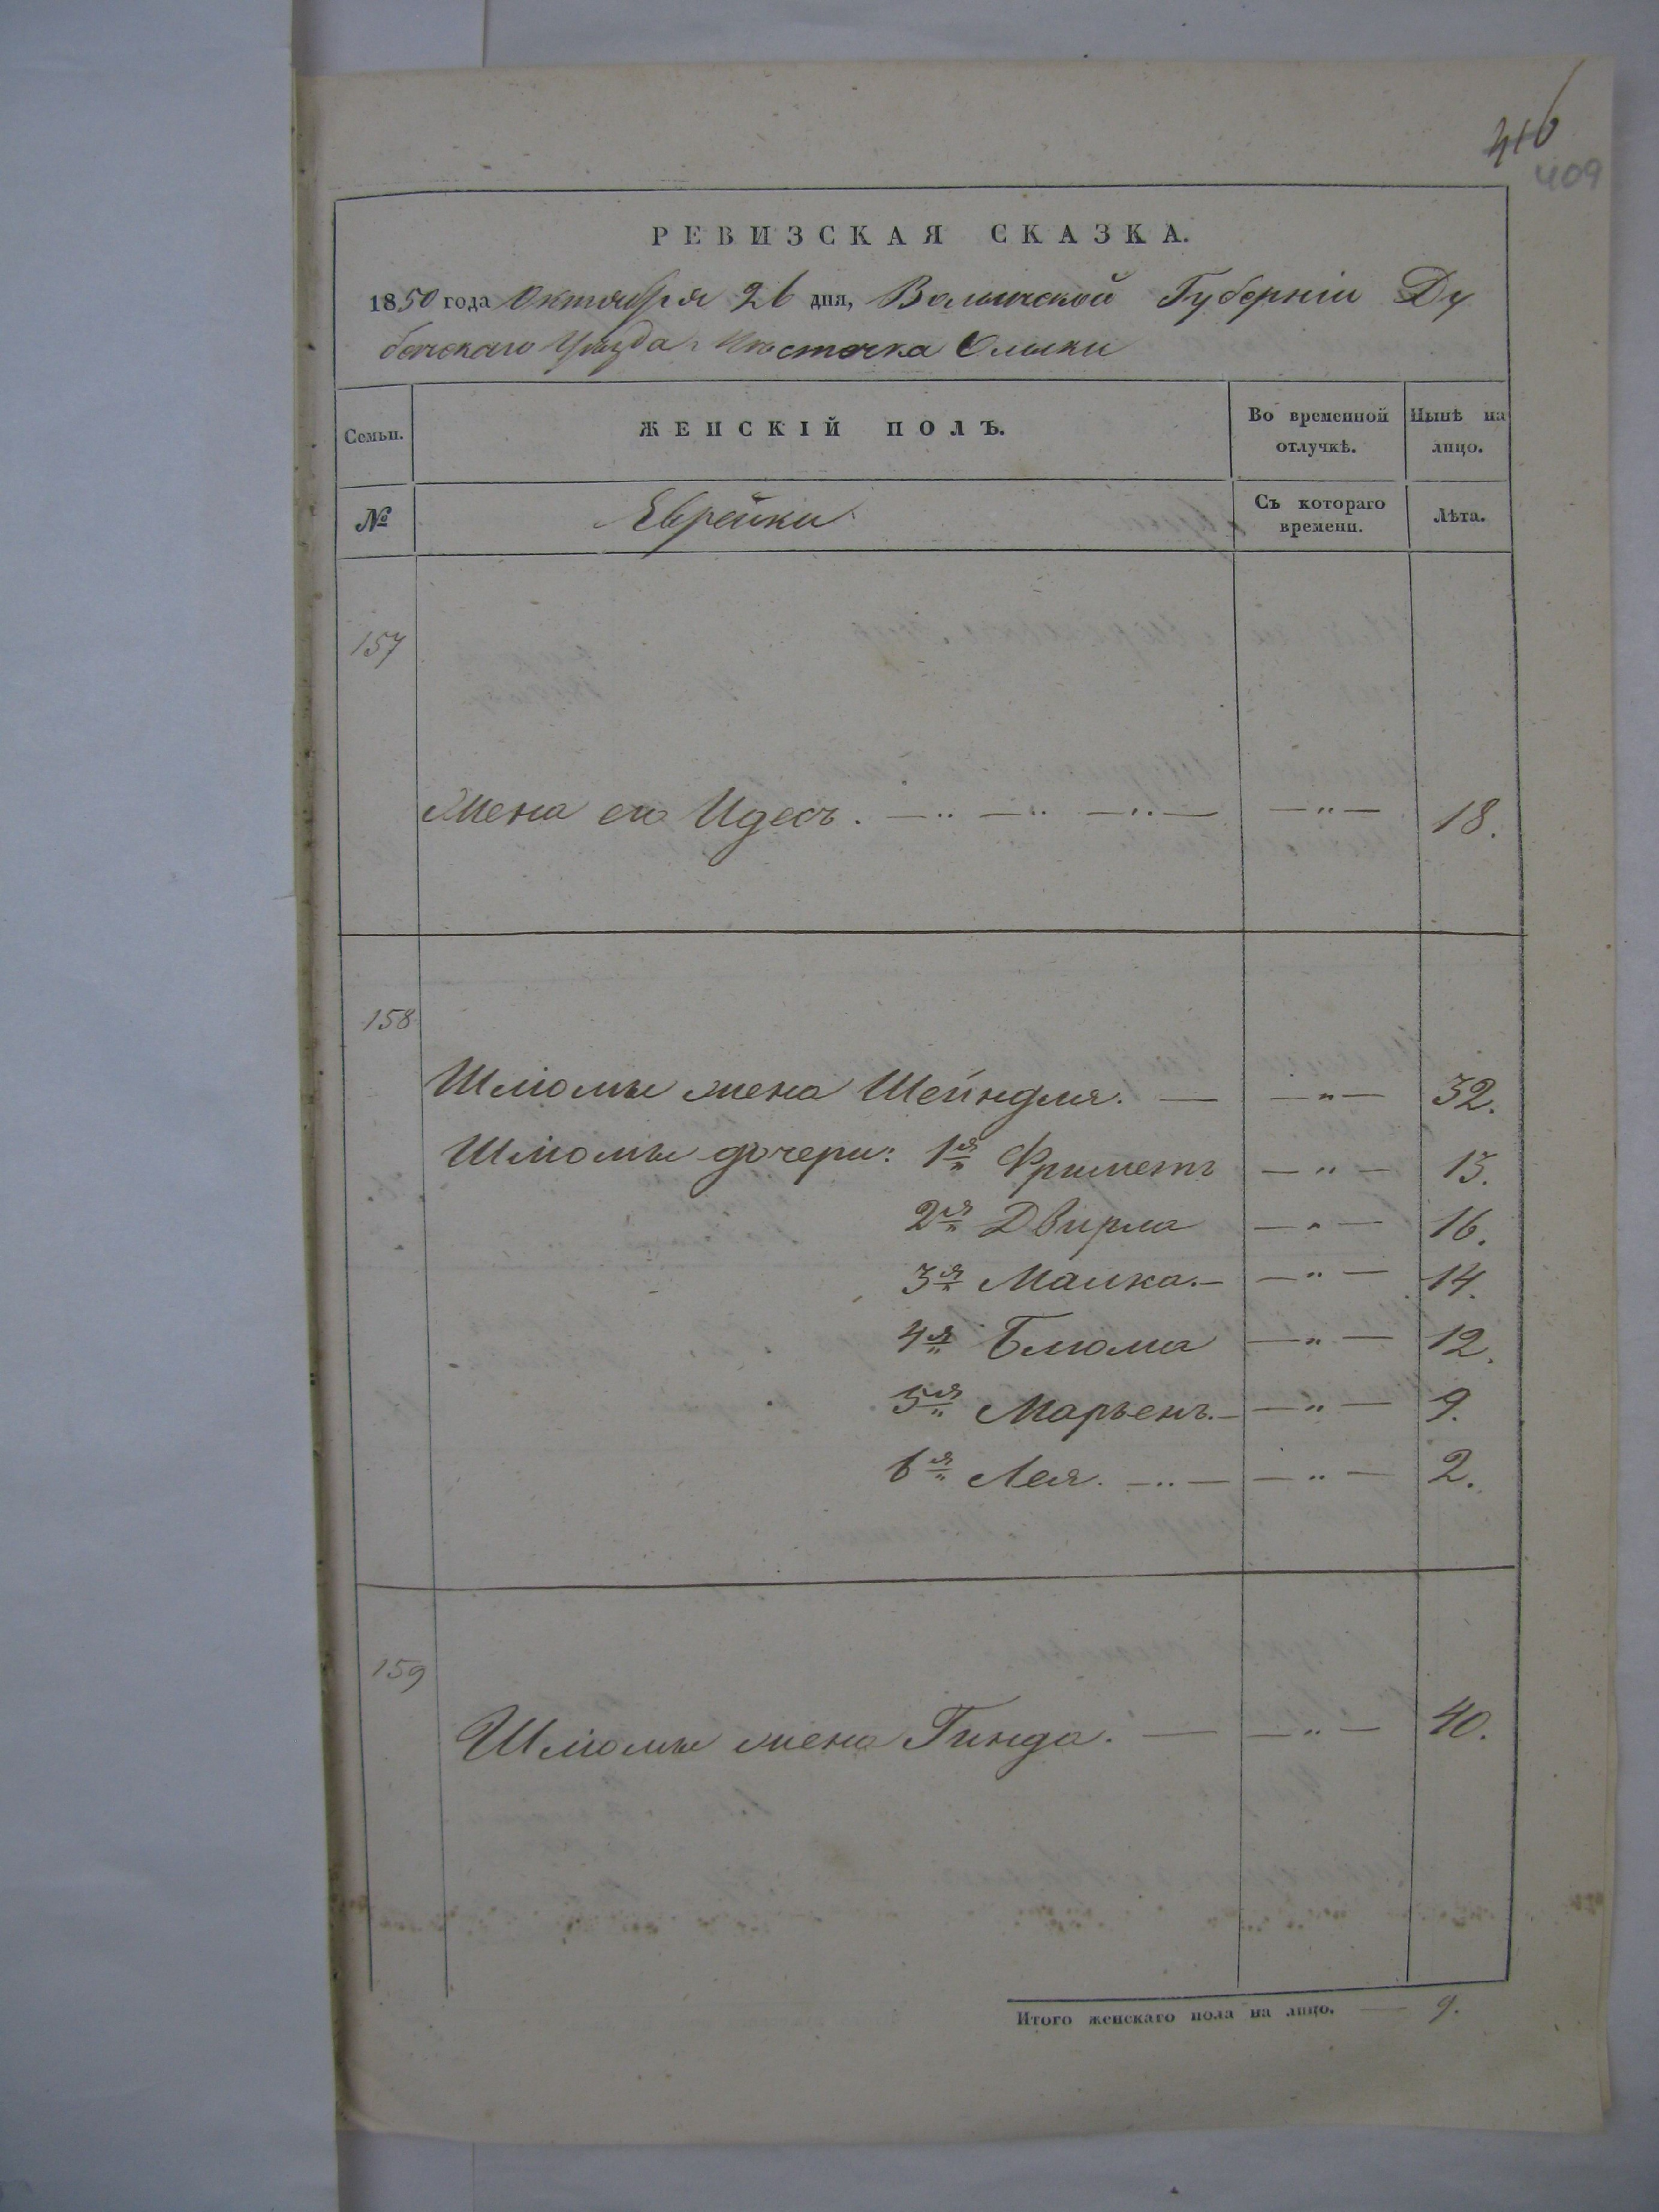 416
409
РЕВИЗСКАЯ СКАЗКА.
1850 года Октября 26 дня, Волынской Губерніи Ду
бенскаго Уѣзда Мѣстечка Олыки
Семьи. ЖЕНСКІЙ ПОЛЪ. Во временной отлучкѣ. Нынѣ на лицо.
№ Еврейки Съ котораго времени. Лѣта.
157
Жена его Идесъ. — " — " — " — — " — 18.
158
Шліомы жена Шейндля. — — " — 32.
Шліомы дочери: 1я Фриметъ — " — 13.
2я Двирла — " — 16.
3я Малка. — — " — 14.
4я Блюма — " — 12.
5я Марьенъ. — — " — 9.
6я Лея. — " — — " — 2.
159
Шліомы жена Гинда. — — " — 40.
Итого женскаго пола на лицо. — 9.